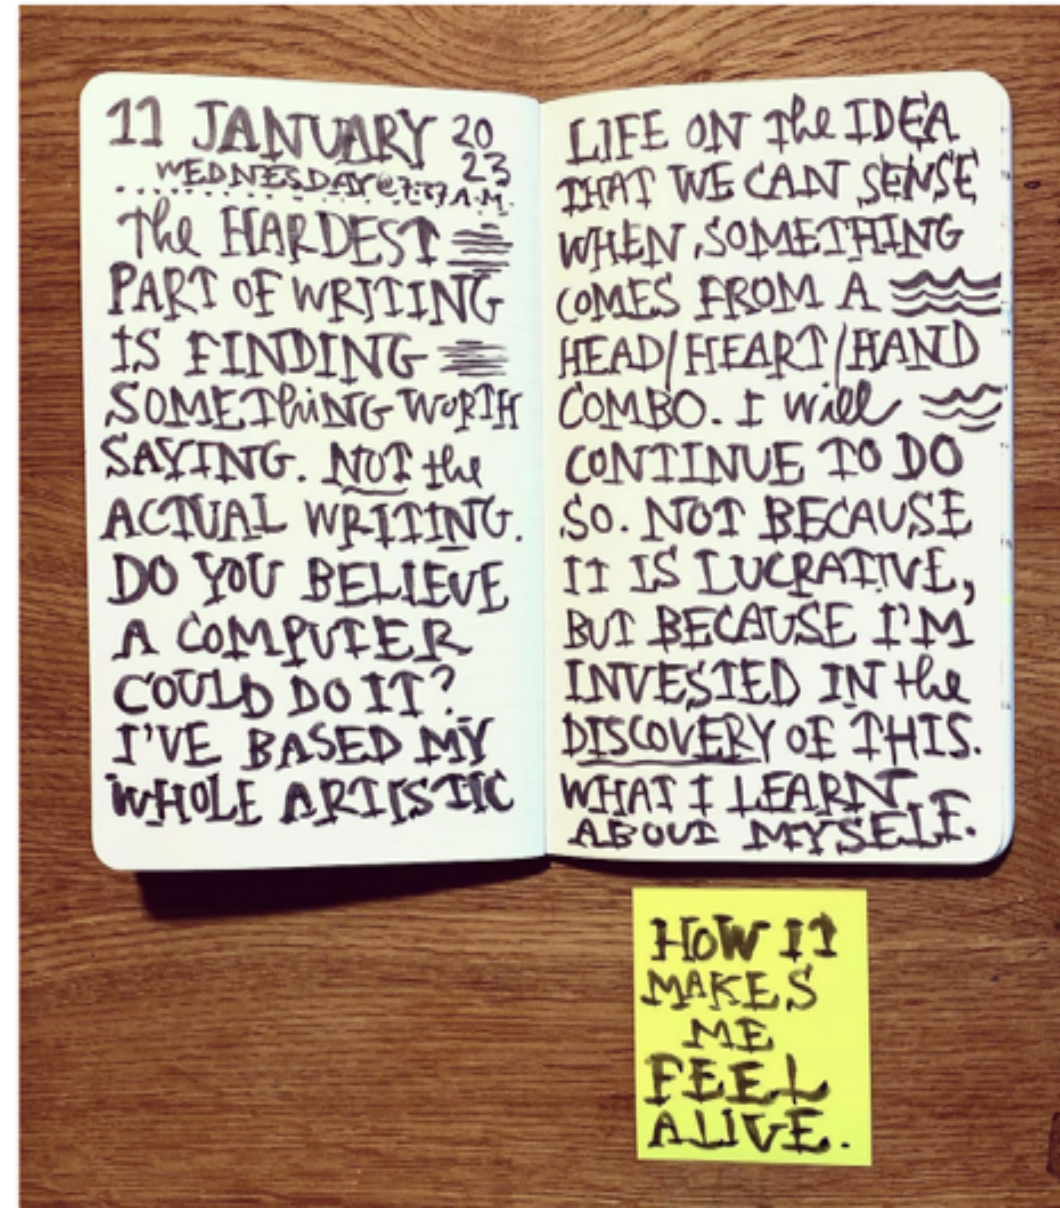 11 JANUARY 2023
WEDNESDAY @ 7:37 A.M.
The HARDEST
PART OF WRITING
IS FINDING
SOMEThiNG WORTH
SAYING. NOT the
ACTUAL WRITING.
DO YOU BELIEVE
A COMPUTER
COULD DO IT?
I'VE BASED MY
WHOLE ARTISTIC
LIFE ON The IDEA
THAT WE CAN SENSE
WHEN SOMETHING
COMES FROM A
HEAD/HEART/HAND
COMBO. I will
CONTINUE TO DO
SO. NOT BECAUSE
IT IS LUCRATIVE,
BUT BECAUSE I'M
INVESTED IN the
DISCOVERY OF THIS.
WHAT I LEARN
ABOUT MYSELF.
HOW IT
MAKES
ME
FEEL
ALIVE.